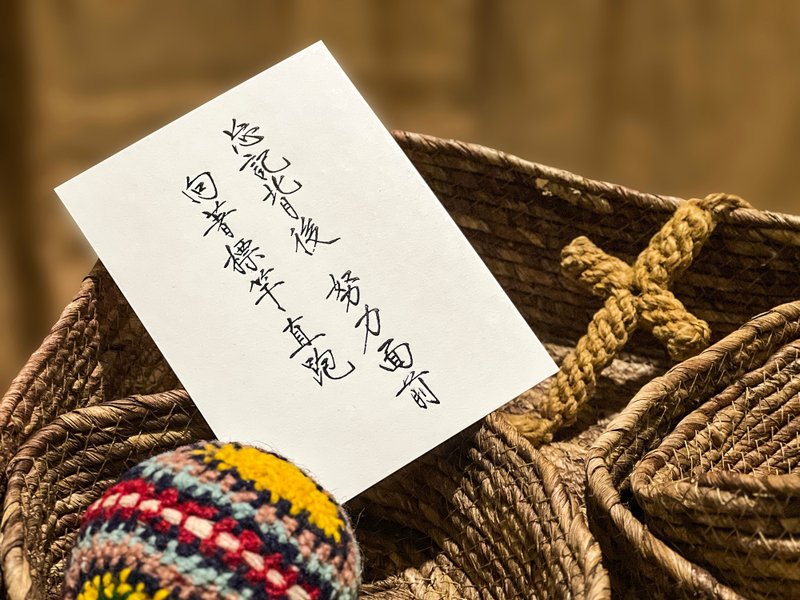 忘記背後 努力面前
向著標竿直跑